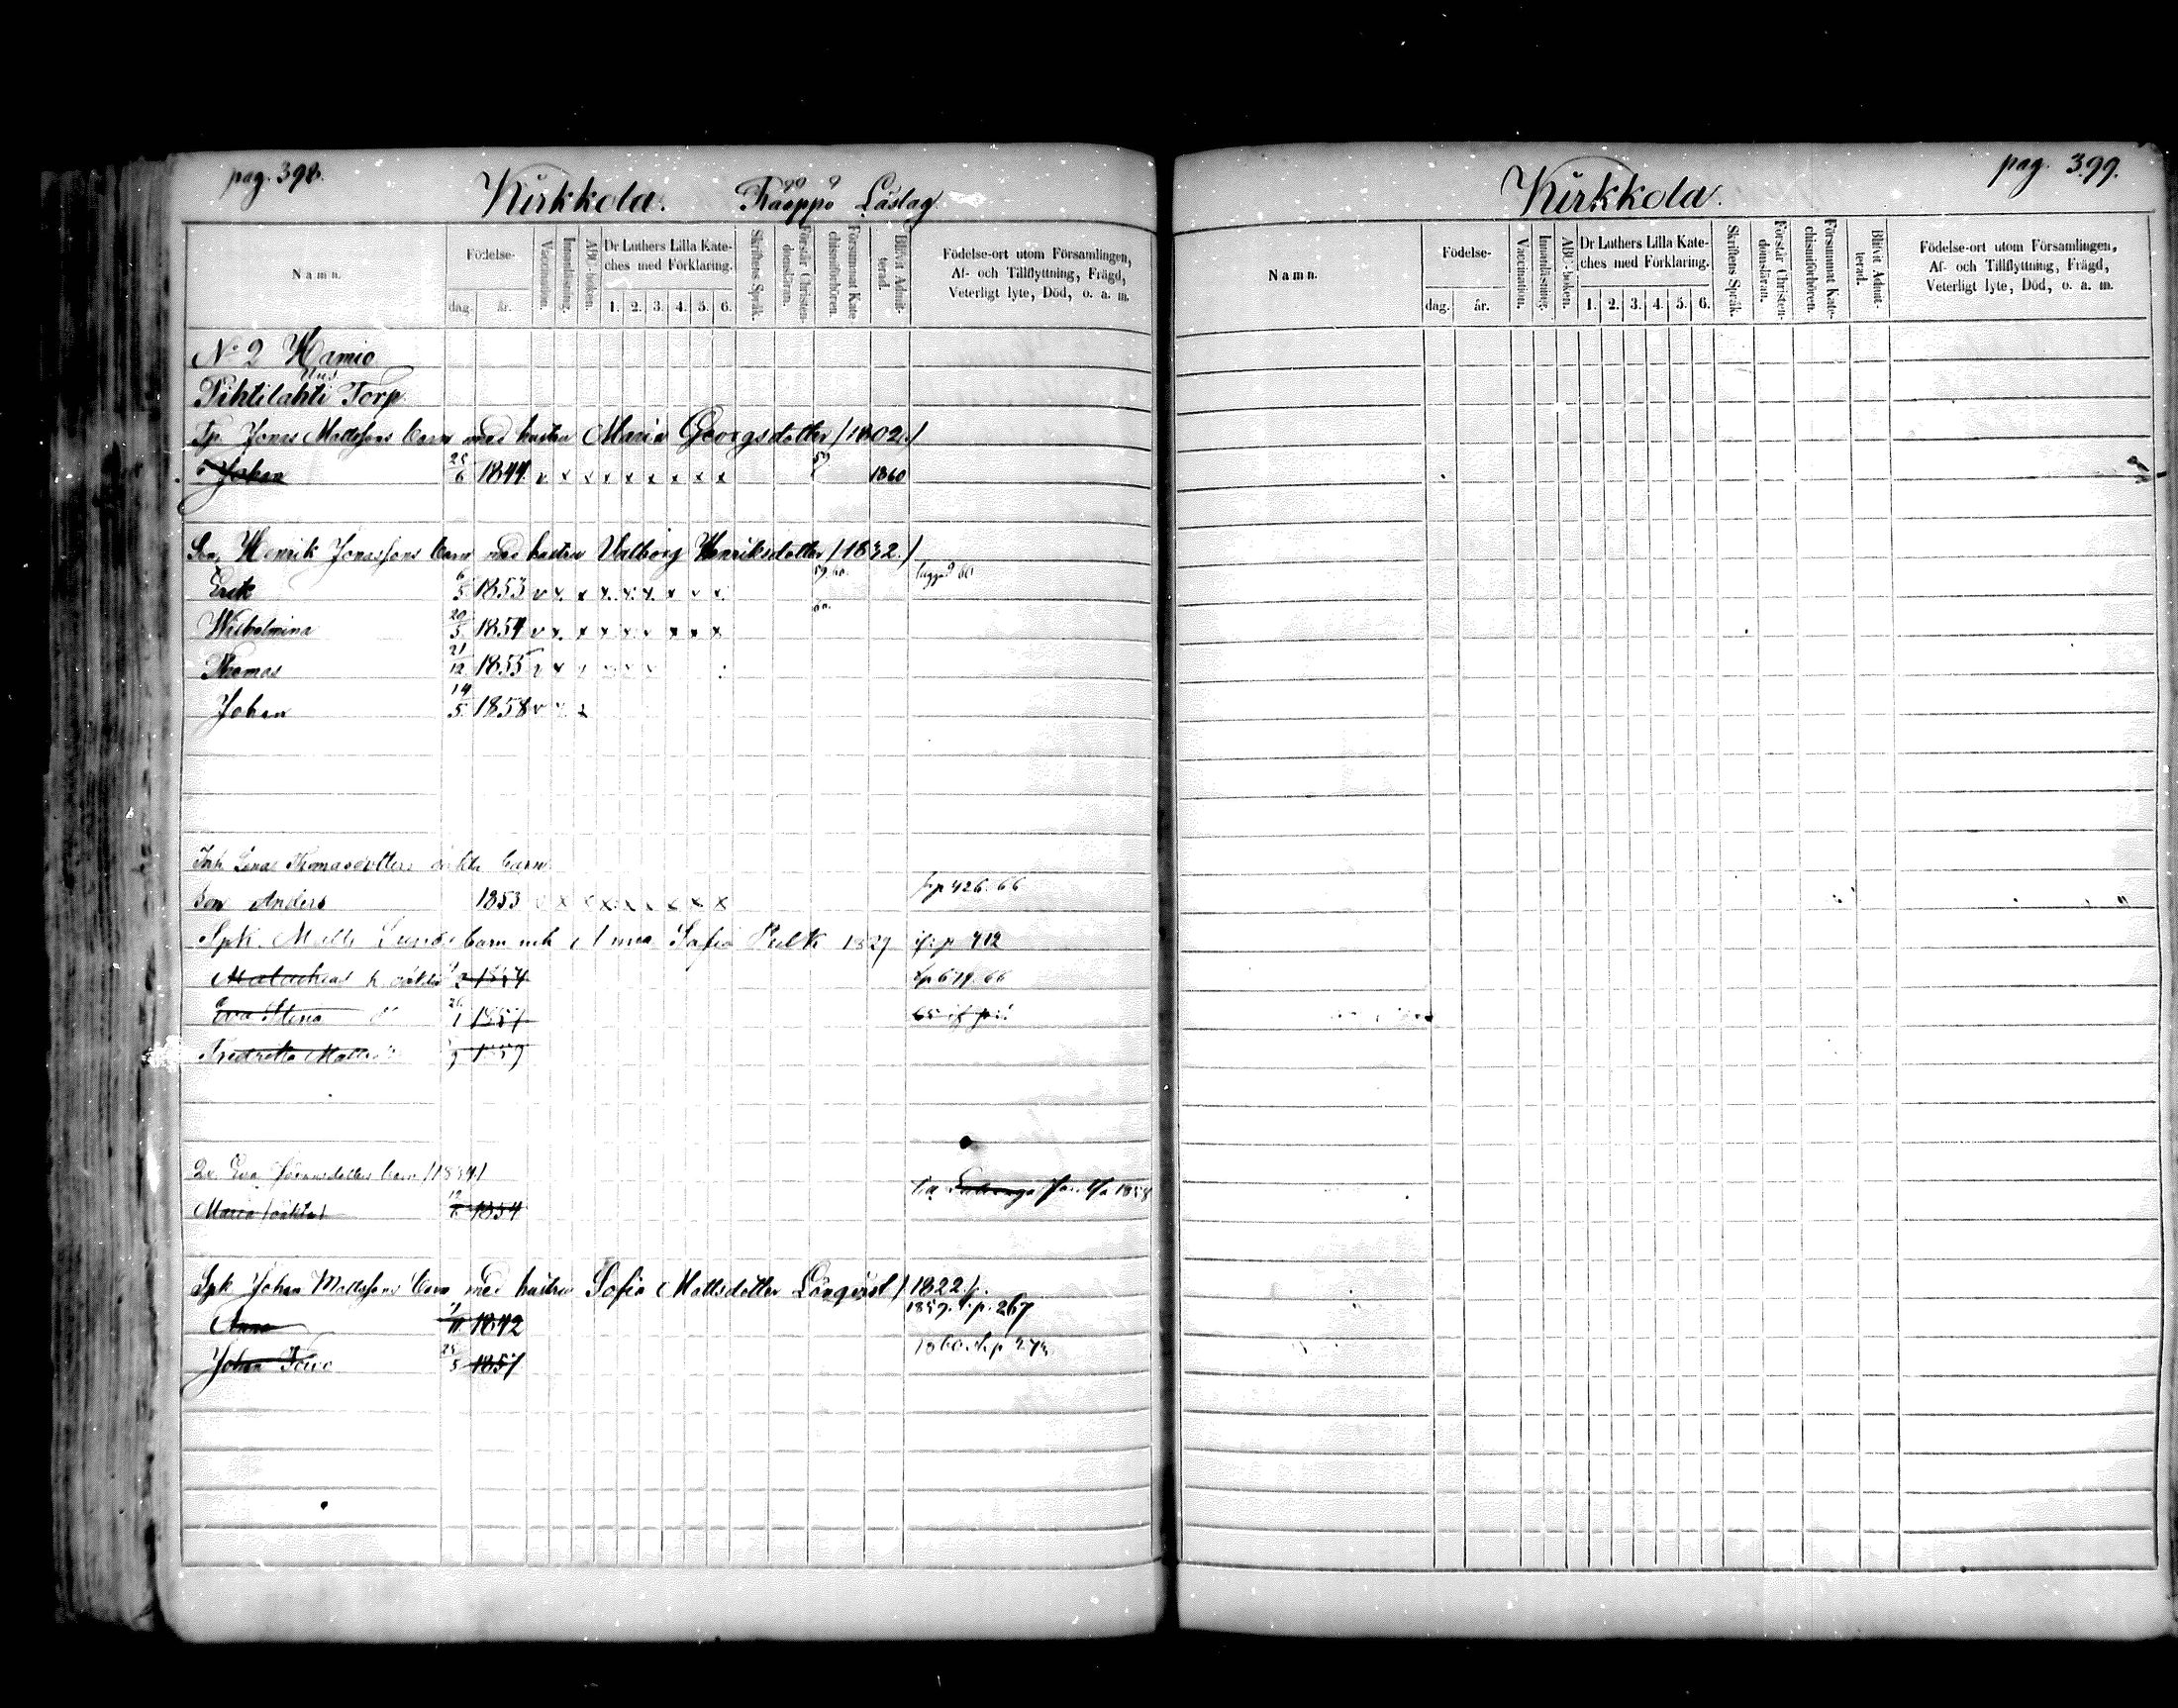 pag. 398.
Kirkkola. Kääppä Läslag
Namn.
Födelse-
dag.
år.
Vaccination.
Innanläsning.
ABC-boken.
Dr Luthers Lilla Kate-
ches med Förklaring.
1. 2. 3. 4. 5. 6.
Skriftens Språk.
Förstår Christen-
domsläran.
Försummat Kate-
chismiförhören.
Blifvit Admit-
terad.
Födelse-ort utom Församlingen,
Af- och Tillflyttning, Frägd,
Veterligt lyte, Död, o. a. m.
No 2 Hamio
Pihtilahti Torp
Tp. Jonas Mattssons barn med hustru Maria Georgsdotter /1802./
Johan 25/6 1844 v x x x x x x x x 59 1860
Son Henrik Jonassons barn med hustru Valborg Henriksdotter /1832./
Erik 6/5 1853 v x x x x x x x x 59.60.
Wilhelmina 20/5 1854 v x x x x x x x x 60.
Thomas 21/12 1855 v x
Johan 14/5 1858 v x x
Inh. Lenas Thomasdotters oäkta barn
Son Anders 1853 v x x x x x x x x fr p 426. 66
Spk. Matts Lunds barn mh Anna Sofia Pulk 1827 if. p 412
Malachias h. oäkta 2 1854 t p 679. 66
Eva Stina 26/1 1857 65
Fredrika 9 1859
Eva barn /1834/
Maria /oäkta/ 12/6 1854 1858
Spk Johan Mattssons barn med hustru Sofia Mattsdotter Lönqvist /1822/.
Anna 11 1842 1859. t. p. 267
Johan Toivo 25/5 1857 1860. t. p 273.
pag. 399.
Kirkkola.
Namn.
Födelse-
dag.
år.
Vaccination.
Innanläsning.
ABC-boken.
Dr Luthers Lilla Kate-
ches med Förklaring.
1. 2. 3. 4. 5. 6.
Skriftens Språk.
Förstår Christen-
domsläran.
Försummat Kate-
chismiförhören.
Blifvit Admit-
terad.
Födelse-ort utom Församlingen,
Af- och Tillflyttning, Frägd,
Veterligt lyte, Död, o. a. m.